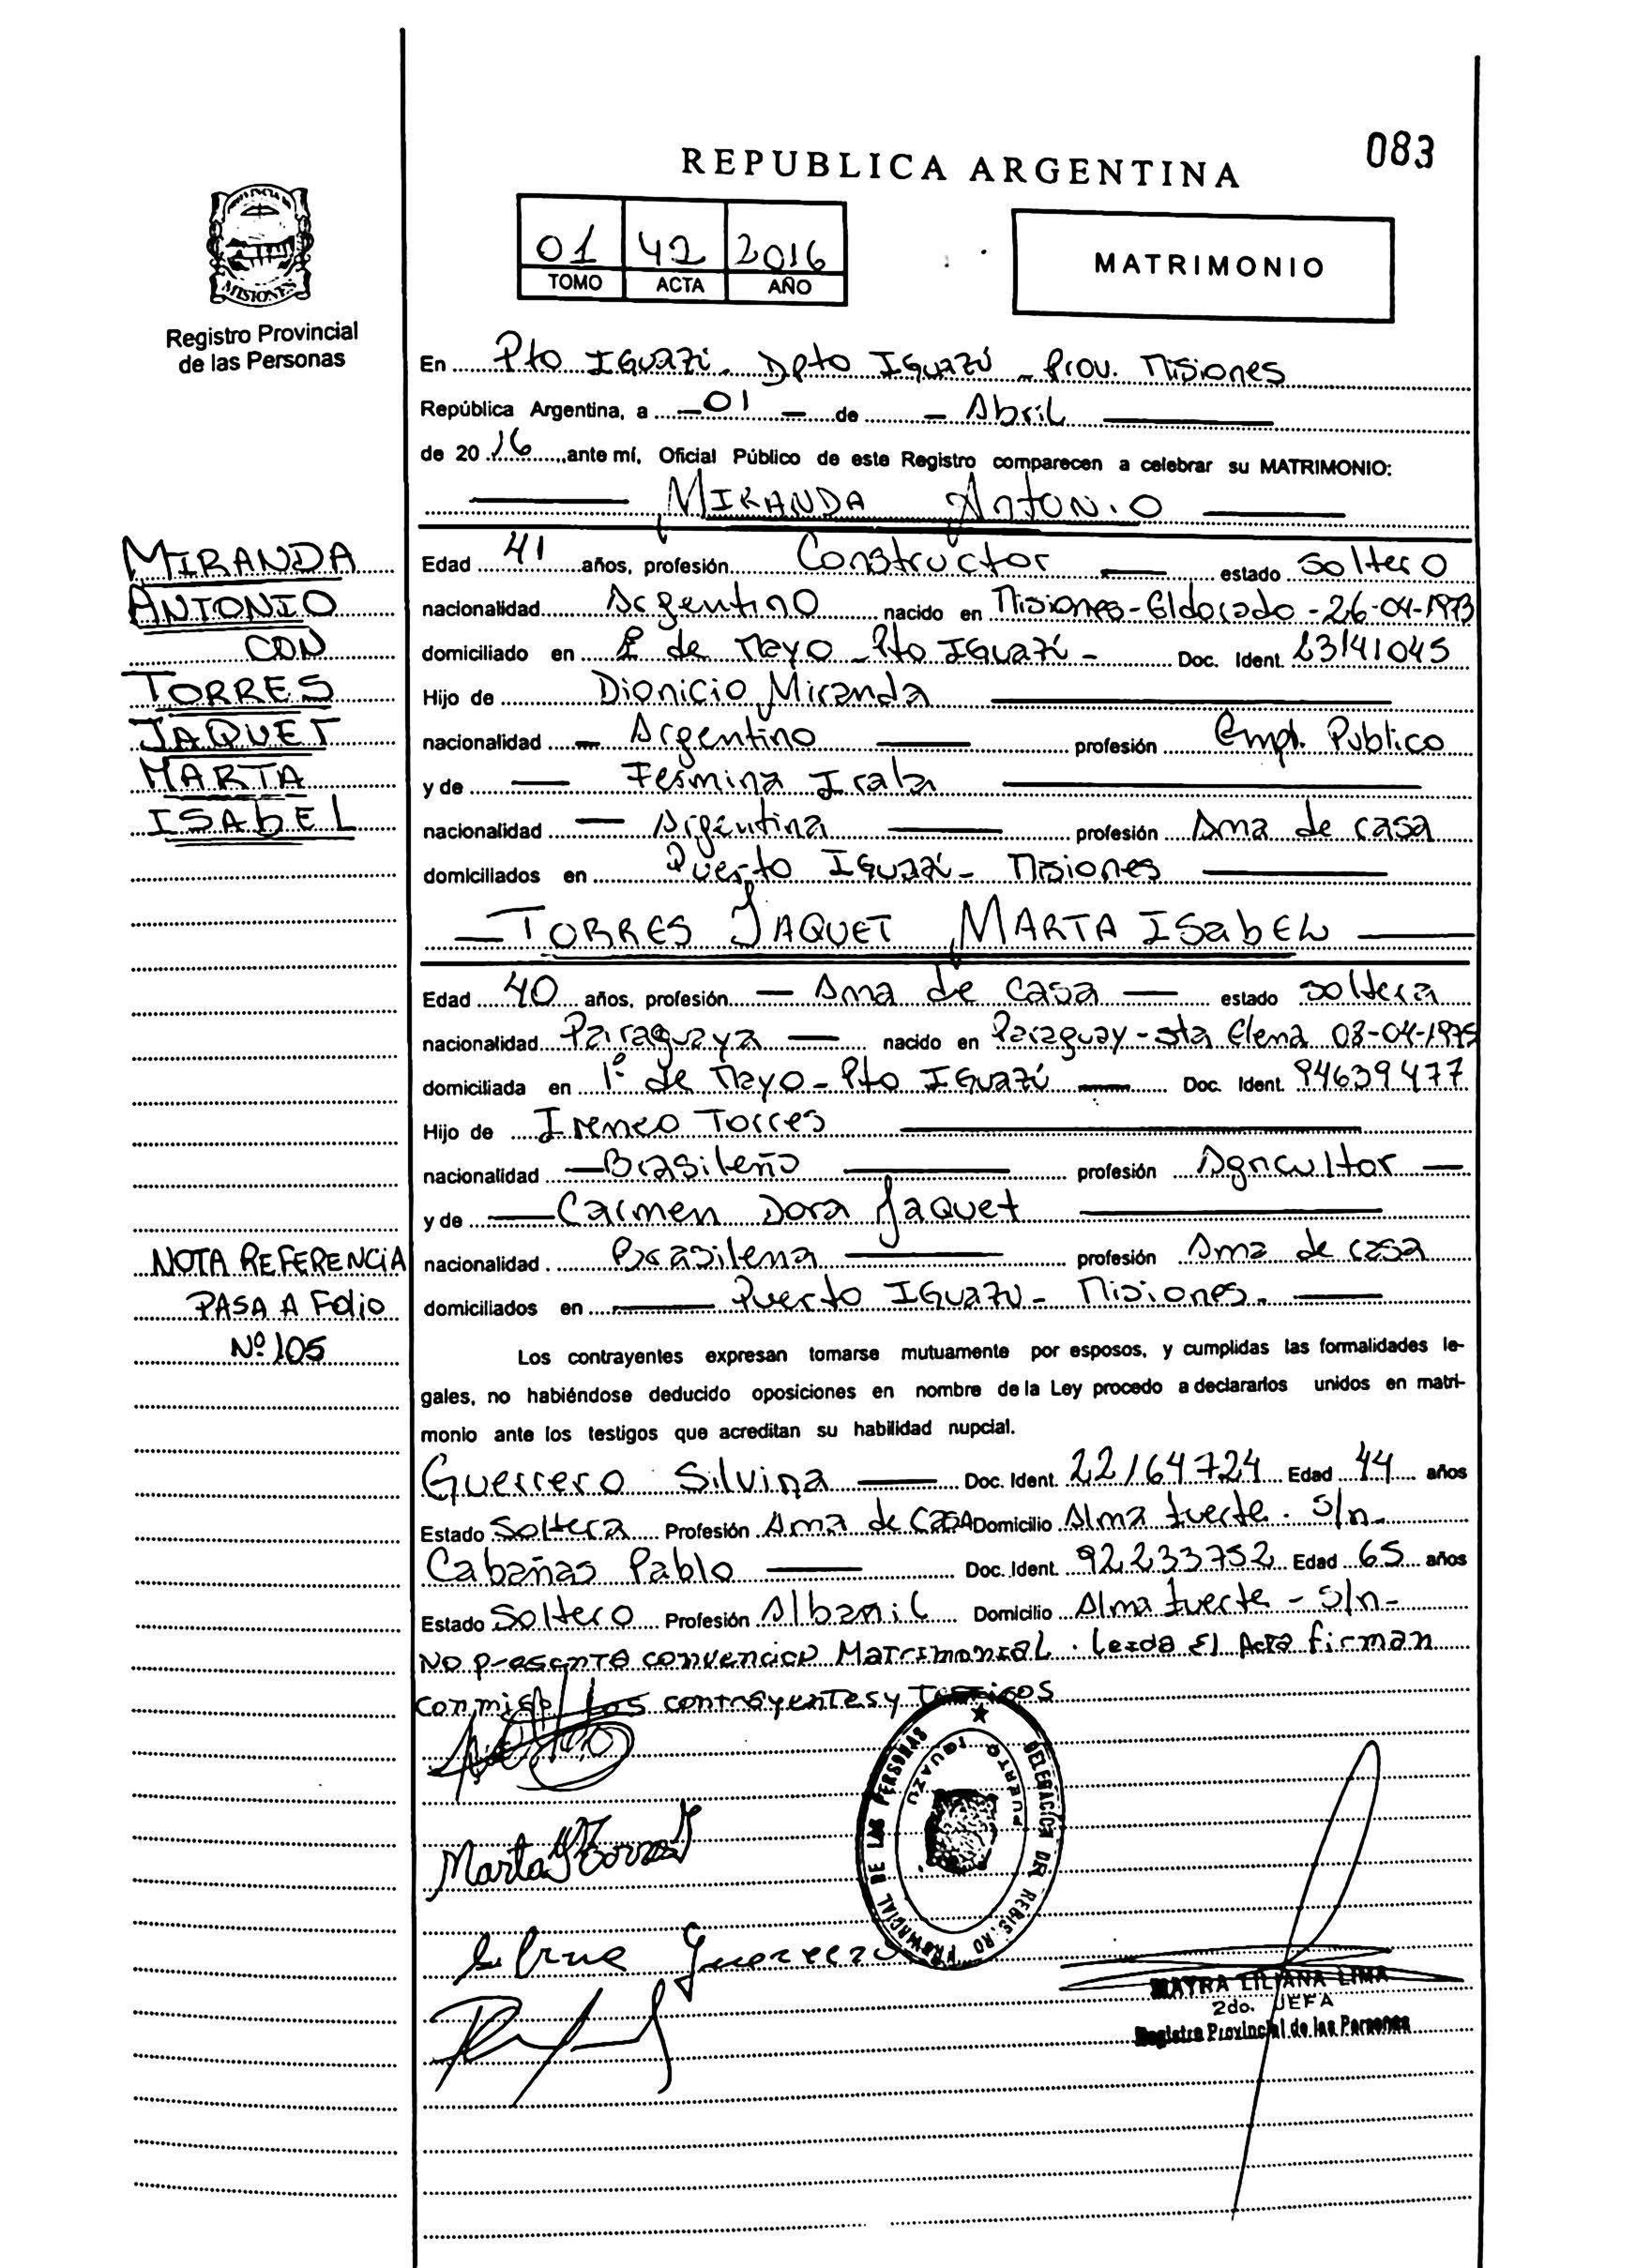 083
REPUBLICA ARGENTINA
PROVINCIA DE
MISIONES
Registro Provincial
de las Personas
01 42 2016
TOMO ACTA AÑO
MATRIMONIO
En Pto IGuazú. Dpto IGuazú - Prov. Misiones
República Argentina, a -01- de - Abril
de 2016, ante mí, Oficial Público de este Registro comparecen a celebrar su MATRIMONIO:
MIRANDA ANTONIO
Edad 41 años, profesión Constructor estado soltero
nacionalidad Argentino nacido en Misiones-Eldorado-26-04-1973
domiciliado en 1º de Mayo - Pto IGuazú - Doc. Ident. 23141045
Hijo de Dionicio Miranda
nacionalidad - Argentino profesión Empl. Publico
y de Fermina Irala
nacionalidad Argentina profesión Ama de casa
domiciliados en Puerto IGuazú - Misiones
TORRES JAQUET MARTA ISabEL
Edad 40 años, profesión - Ama de casa - estado soltera
nacionalidad Paraguaya nacido en Paraguay-sta Elena 08-04-1975
domiciliada en 1º de Mayo - Pto IGuazú Doc. Ident. 94639477
Hijo de Ireneo Torres
nacionalidad Brasileño profesión Agricultor
y de Carmen Dora Jaquet
nacionalidad. Brasilena profesión Ama de casa
domiciliados en Puerto IGuazu - Misiones.
Los contrayentes expresan tomarse mutuamente por esposos, y cumplidas las formalidades le-
gales, no habiéndose deducido oposiciones en nombre de la Ley procedo a declararlos unidos en matri-
monio ante los testigos que acreditan su habilidad nupcial.
Guerrero Silvina Doc. Ident. 22164724 Edad 44 años
Estado Soltera Profesión Ama de CASA Domicilio Alma fuerte. s/n.
Cabañas Pablo Doc. Ident. 92233752 Edad 65 años
Estado Soltero Profesión Albanil Domicilio Alma fuerte - s/n-
No presentA convencion Matrimonial. leida El Acta firman
conmigo los contrayentes y Testigos
MIRANDA
ANTONIO
CON
TORRES
JAQUET
MARTA
ISAbEL
NOTA REFERENCiA
PASA A Folio
Nº 105
Marta Torres J
Silvina Guerrero
DELEGACION DEL REGISTRO PROVINCIAL DE LAS PERSONAS
PUERTO IGUAZU
MAYRA LILIANA LIMA
2do. JEFA
Registro Provincial de las Personas